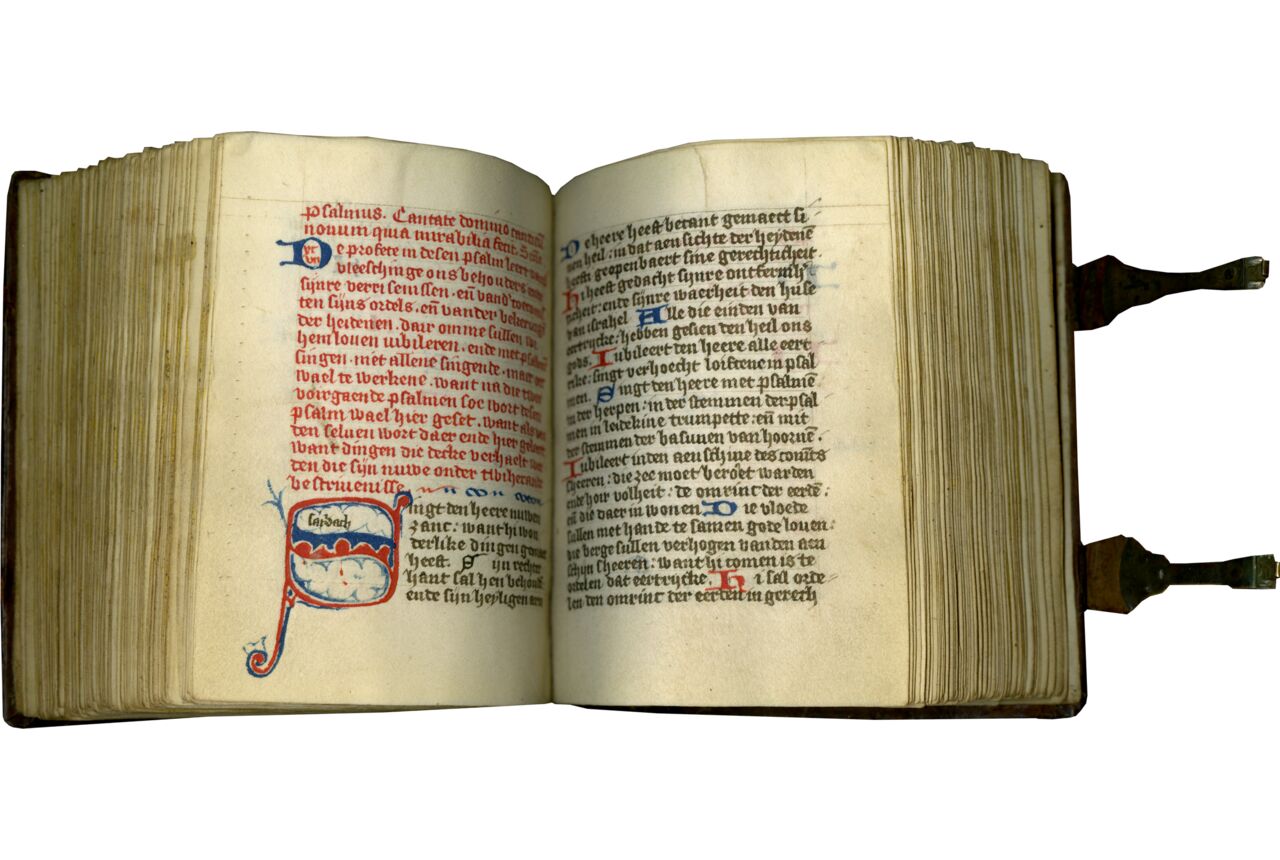 Psalmus. Cantate domino canticū
nouum quia mirabilia fecit.
De profete in desen psalm leert
vleeschinge ons behouders ende
sijnre verrisenissen. eñ vand'
ten sijns ordels. eñ vander bekeringe
der heidenen. dair omme sullen wi
hem louen iubileren. ende met psalmē
singen. met allene singende. maer oec
wael te werkene. want na die twee
voirgaende psalmen soe wort desen
psalm wael hier geset. want als van
den seluen wort daer ende hier geleert
want dingen die decke verhaelt wer
den die sijn nuwe onder
bescriuenisse.
saterdach
Singt den heere nuwen
zanc: want hi won
derlike dingen gemaect
heeft. Sijn rechter
hant sal hen behouden
ende sijn heyligen arm
De heere heeft becant gemaect si
nen heil: in dat aensichte der heydenē
heeft geopenbaert sine gerechticheit.
Hi heeft gedacht sijnre ontfermh
ticheit: ende sijnre waerheit den huse
van israhel Alle die einden van
eertrijcke: hebben gesien den heil ons
gods. Iubileert den heere alle eert
rike: singt verhoecht loift ende in psal
men. Singt den heere met psalmē
in der herpen: in der stemmen der psal
men in leidekine trumpette: eñ mit
der stemmen der basunen van hoornē.
Iubileert in den aenschine des conīcs
sheeren: die zee moet beroēt warden
ende hoir volheit: de omrinc der eerdē:
eñ die daer in wonen Die vloede
sullen met hande te samen gode louen:
die berge sullen verhogen van den aen
schijn sheeren: want hi comen is te
ordelen dat eertrijcke. Hi sal orde
len den omrinc der eerden in gerech